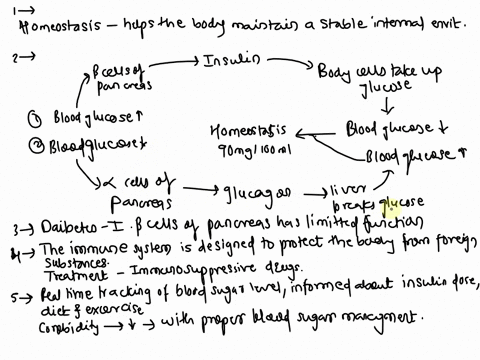 1→
Homeostasis – helps the body maintain a stable internal envit.
2→
β cells of pancreas → Insulin → Body cells take up glucose
① Blood glucose ↑
Homeostasis 90mg/100ml
Blood glucose ↓
② Blood glucose ↓
Blood glucose ↑
α cells of Pancreas → glucagon → liver breaks glucose
3→ Daibetes-I . β cells of pancreas has limited function
4→ The immune system is designed to protect the body from foreign
substances.
Treatment – Immunosuppressive drugs.
5→ Real time tracking of blood sugar level, informed about insulin dose,
diet & excercise
Comobidity → ↓ → with proper blood sugar management.